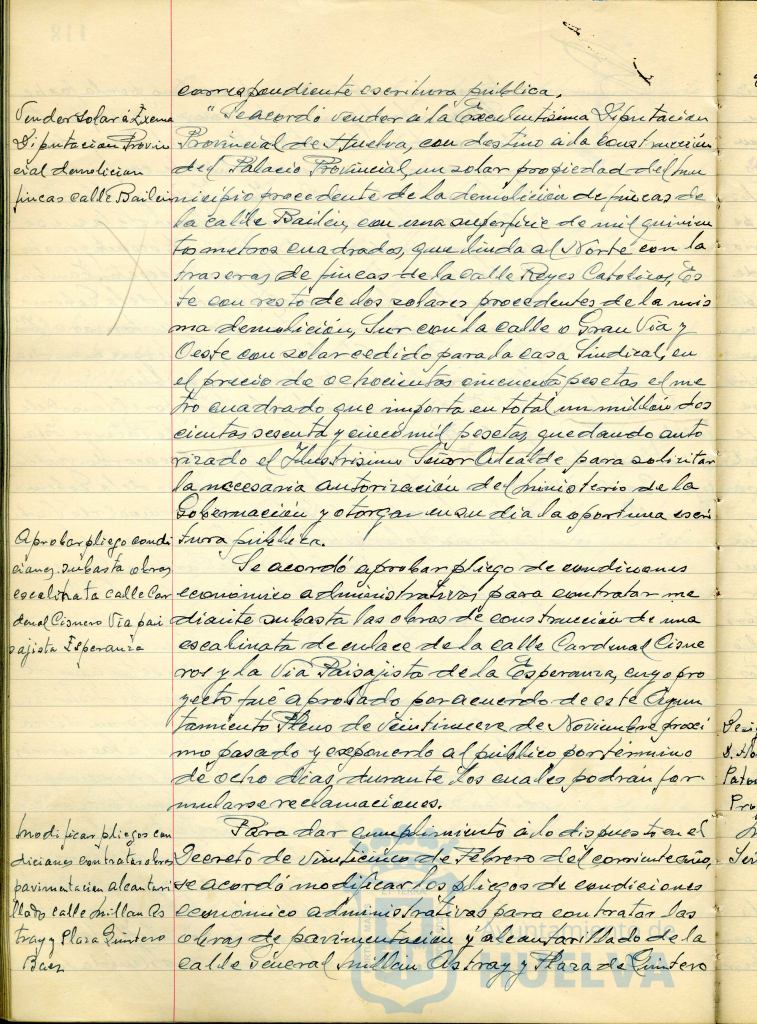 correspondiente escritura pública.
Vender solar á Exema
Diputacion Provin
cial demolicion
fincas calle Bailén
"Se acordó vender á la Excelentísima Diputacion
Provincial de Huelva, con destino á la construcción
del Palacio Provincial, un solar propiedad del Mu
nicipio procedente de la demolición de fincas de
la calle Bailén, con una superficie de mil quinien
tos metros cuadrados, que linda al Norte con la
traseras de fincas de la calle Reyes Catolicos, Es
te con resto de los solares procedentes de la mis
ma demolición, Sur con la calle o Gran Vía y
Oeste con solar cedido para la casa Sindical, en
el precio de ochocientas cincuenta pesetas el me
tro cuadrado que importa en total un millón dos
cientas sesenta y cinco mil pesetas, quedando auto
rizado el Ilustrisimo Señor Alcalde para solicitar
la necesaria autorización del Ministerio de la
Gobernación y otorgar en su dia la oportuna escri
tura pública.
Aprobar pliego condi
ciones subasta obras
escalinata calle Car
denal Cisnero Via pai
sajista Esperanza
Se acordó aprobar pliego de condiciones
económico administrativas para contratar me
diante subasta las obras de construcción de una
escalinata de enlace de la calle Cardenal Cisne
ros y la Via Paisajista de la Esperanza, cuyo pro
yecto fué aprobado por acuerdo de este Ayun
tamiento Pleno de veintinueve de Noviembre proxi
mo pasado y exponerlo al público por término
de ocho dias durante los cuales podrán for
mularse reclamaciones.
Modificar pliegos con
diciones contratar obras
pavimentacion alcantari
llado calle Millan As
tray y Plaza Quintero
Baez
Para dar cumplimiento á lo dispuesto en el
Decreto de veinticinco de Febrero del corriente año,
se acordó modificar los pliegos de condiciones
económico administrativas para contratar las
obras de pavimentación y alcantarillado de la
calle General Millán Astray y Plaza de Quintero
Ayuntamiento de
HUELVA